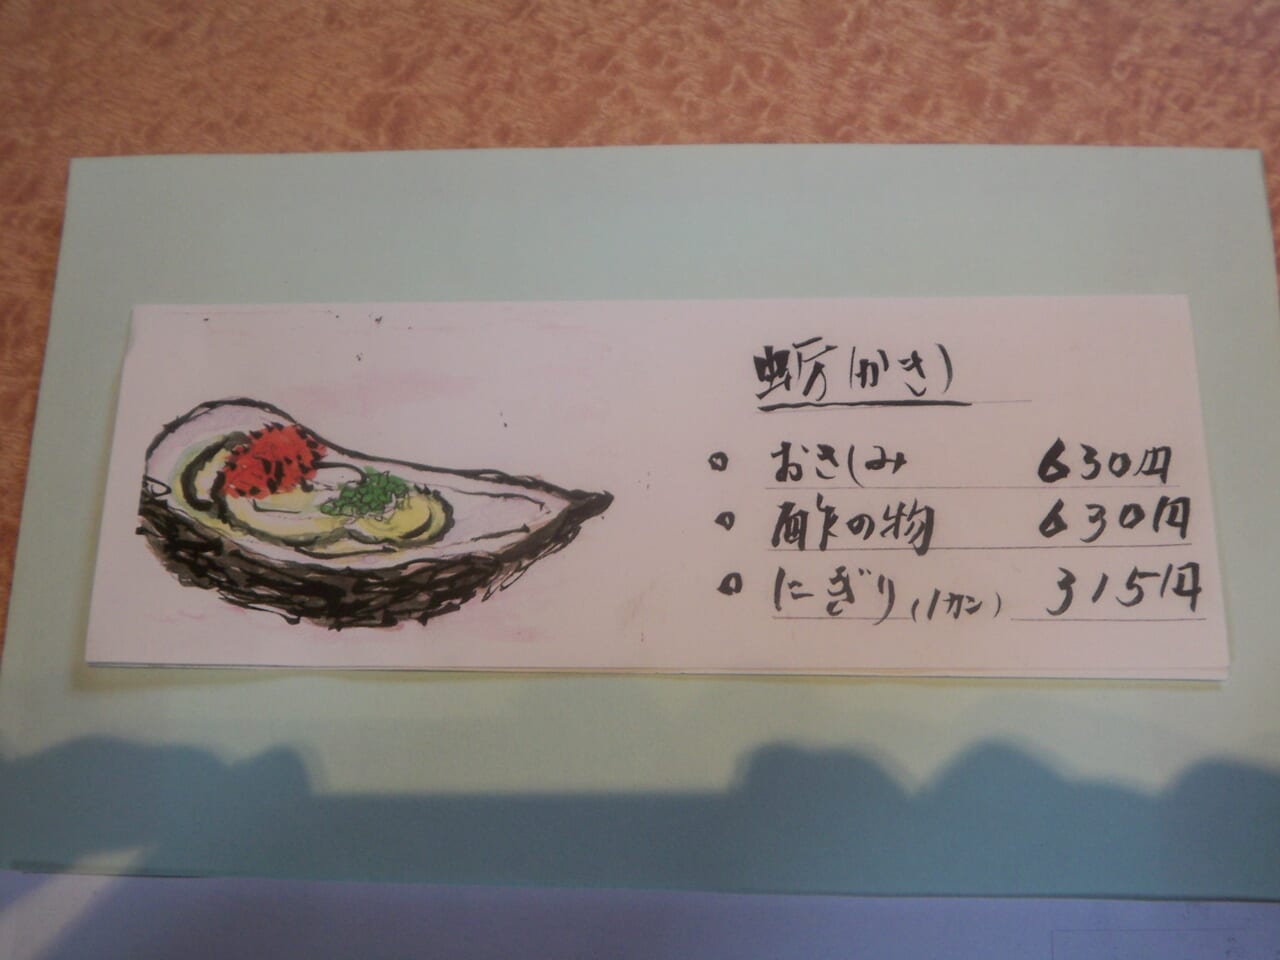 蛎房(かき)
○ おさしみ 630円
○ 酢の物 630円
○ にぎり(1カン) 315円